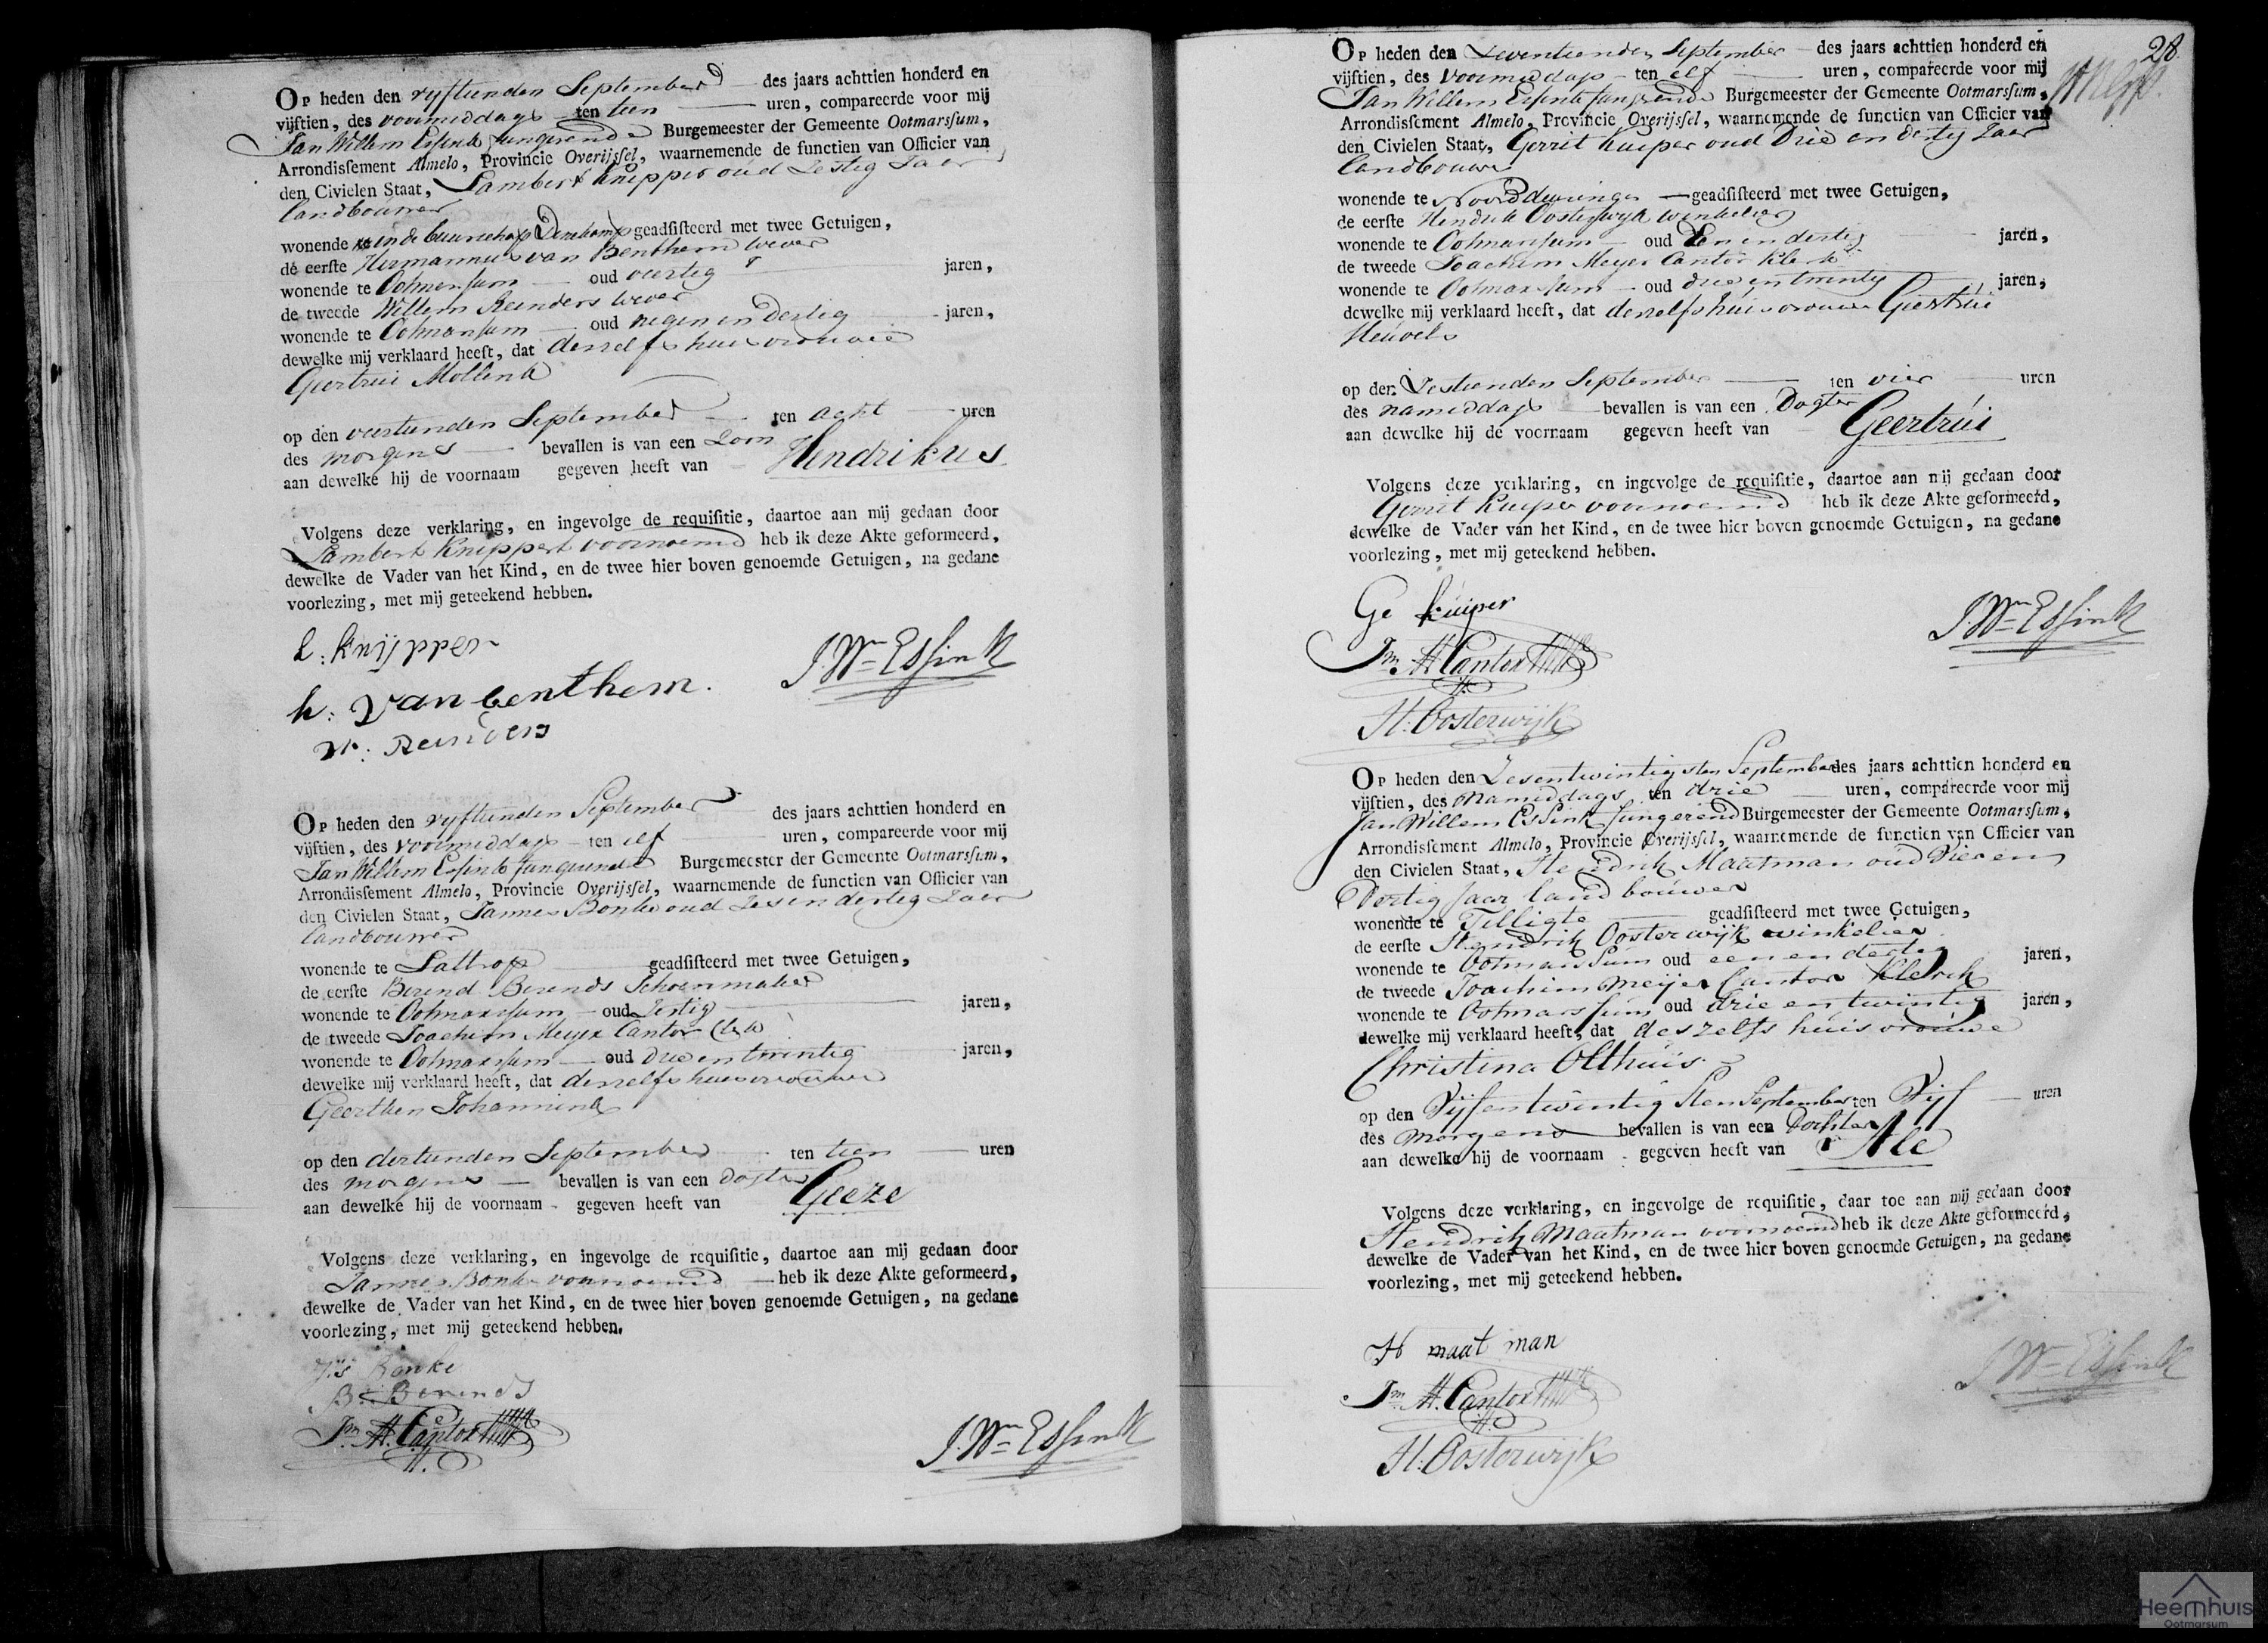 Op heden den vyftienden September des jaars achttien honderd en
vijftien, des voormiddags ten tien uren, compareerde voor mij
Jan Willem Essink fungerende Burgemeester der Gemeente Ootmarssum,
Arrondissement Almelo, Provincie Overijssel, waarnemende de functien van Officier van
den Civielen Staat, Lambert Knipper oud Zestig Jaer
Landbouwer
wonende in de buurschap geadsisteerd met twee Getuigen,
de eerste Hermannus van Benthem wever
wonende te Ootmarsum oud veertig jaren,
de tweede Willem Reinders wever
wonende te Ootmarsum oud negen en Dertig jaren,
dewelke mij verklaard heeft, dat deszelfs huisvrouwe
Geertrui Mollink
op den veertienden September ten acht uren
des morgens bevallen is van een Zoon
aan dewelke hij de voornaam gegeven heeft van Hendrikus
Volgens deze verklaring, en ingevolge de requisitie, daartoe aan mij gedaan door
Lambert Knippert voornoemd heb ik deze Akte geformeerd,
dewelke de Vader van het Kind, en de twee hier boven genoemde Getuigen, na gedane
voorlezing, met mij geteekend hebben.
L: Knijpper
J. Wm Essink
h: van benthem.
W: Reinders
Op heden den vyftienden September des jaars achttien honderd en
vijftien, des voormiddags ten elf uren, compareerde voor mij
Jan Willem Essink fungerende Burgemeester der Gemeente Ootmarssum,
Arrondissement Almelo, Provincie Overijssel, waarnemende de functien van Officier van
den Civielen Staat, Jannes Bonke oud Zes en dertig Jaer
Landbouwer
wonende te Lattrop geadsisteerd met twee Getuigen,
de eerste Berend Berends Schoenmaker
wonende te Ootmarssum oud Zestig jaren,
de tweede Joachim Meyer Cantor
wonende te Ootmarssum oud drie en twintig jaren,
dewelke mij verklaard heeft, dat deszelfs huisvrouwe
Geerthen Johannink
op den dertienden September ten tien uren
des morgens bevallen is van een dogter
aan dewelke hij de voornaam gegeven heeft van Geeze
Volgens deze verklaring, en ingevolge de requisitie, daartoe aan mij gedaan door
Jannes Bonke voornoemd heb ik deze Akte geformeerd,
dewelke de Vader van het Kind, en de twee hier boven genoemde Getuigen, na gedane
voorlezing, met mij geteekend hebben.
J:s Bonke
B: Berends
Jm M. Cantor
J. Wm Essink
28.
Op heden den Zeventienden September des jaars achttien honderd en
vijftien, des Voormiddags ten elf uren, compareerde voor mij
Jan Willem Essink fungerende Burgemeester der Gemeente Ootmarssum,
Arrondissement Almelo, Provincie Overijssel, waarnemende de functien van Officier van
den Civielen Staat, Gerrit Kuiper oud Drie en dertig Jaer
Landbouwer
wonende te Noorddeuringen geadsisteerd met twee Getuigen,
de eerste Hendrik Oosterwyk winkelier
wonende te Ootmarssum oud Een en dertig jaren,
de tweede Joachim Meyer Cantor Klerk
wonende te Ootmarssum oud drie en twintig jaren,
dewelke mij verklaard heeft, dat deszelfs huisvrouwe Geertrui
Heuvels
op den Zestienden September ten vier uren
des namiddags bevallen is van een Dogter
aan dewelke hij de voornaam gegeven heeft van Geertrui
Volgens deze verklaring, en ingevolge de requisitie, daartoe aan mij gedaan door
Gerrit Kuiper voornoemd heb ik deze Akte geformeerd,
dewelke de Vader van het Kind, en de twee hier boven genoemde Getuigen, na gedane
voorlezing, met mij geteekend hebben.
Ge Kuiper
J. Wm Essink
Jm M. Cantor
H: Oosterwijk
Op heden den Zesentwintigsten September des jaars achttien honderd en
vijftien, des Namiddags ten drie uren, compareerde voor mij
Jan Willem Essink fungerend Burgemeester der Gemeente Ootmarssum,
Arrondissement Almelo, Provincie Overijssel, waarnemende de functien van Officier van
den Civielen Staat, Hendrik Maatman oud Vier en
Dertig Jaar landbouwer
wonende te Tilligte geadsisteerd met twee Getuigen,
de eerste Hendrik Oosterwijk winkelier
wonende te Ootmarssum oud een en dertig jaren,
de tweede Joachim Meijer Cantor Klerck
wonende te Ootmarssum oud drie en twintig jaren,
dewelke mij verklaard heeft, dat deszelfs huisvrouwe
Christina Olthuis
op den Vijfentwintigsten September ten Vijf uren
des morgens bevallen is van een Dochter
aan dewelke hij de voornaam gegeven heeft van Ale
Volgens deze verklaring, en ingevolge de requisitie, daar toe aan mij gedaan door
Hendrik Maatman voornoemd heb ik deze Akte geformeerd,
dewelke de Vader van het Kind, en de twee hier boven genoemde Getuigen, na gedane
voorlezing, met mij geteekend hebben.
H maat man
J Wm Essink
Jm M. Cantor
H: Oosterwijk
Heemhuis
Ootmarsum